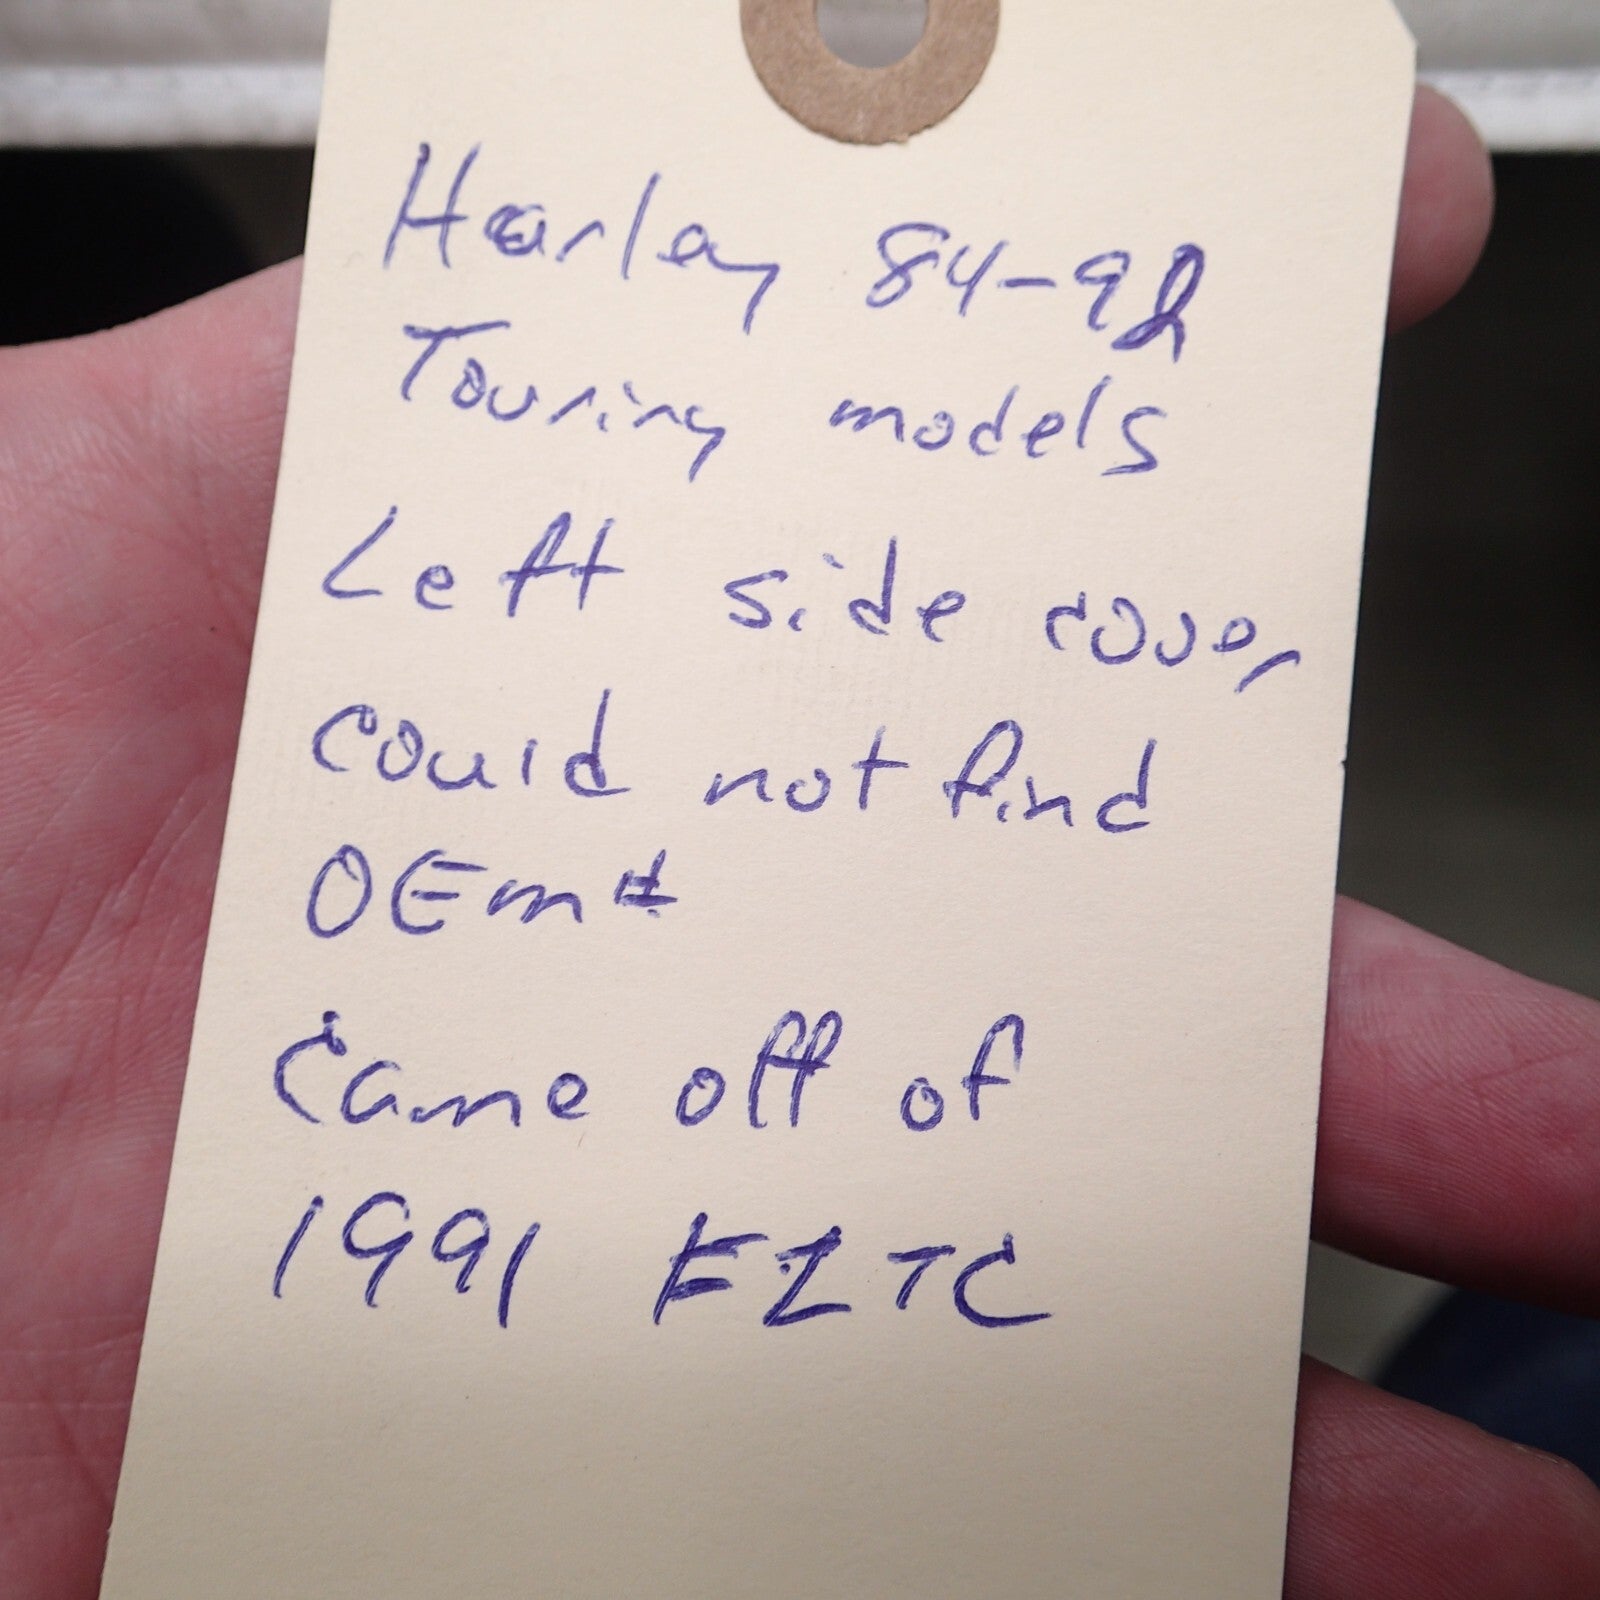 Harley 84-92
Touring models
Left side cover
could not find
OEM#
Came off of
1991 FLTC